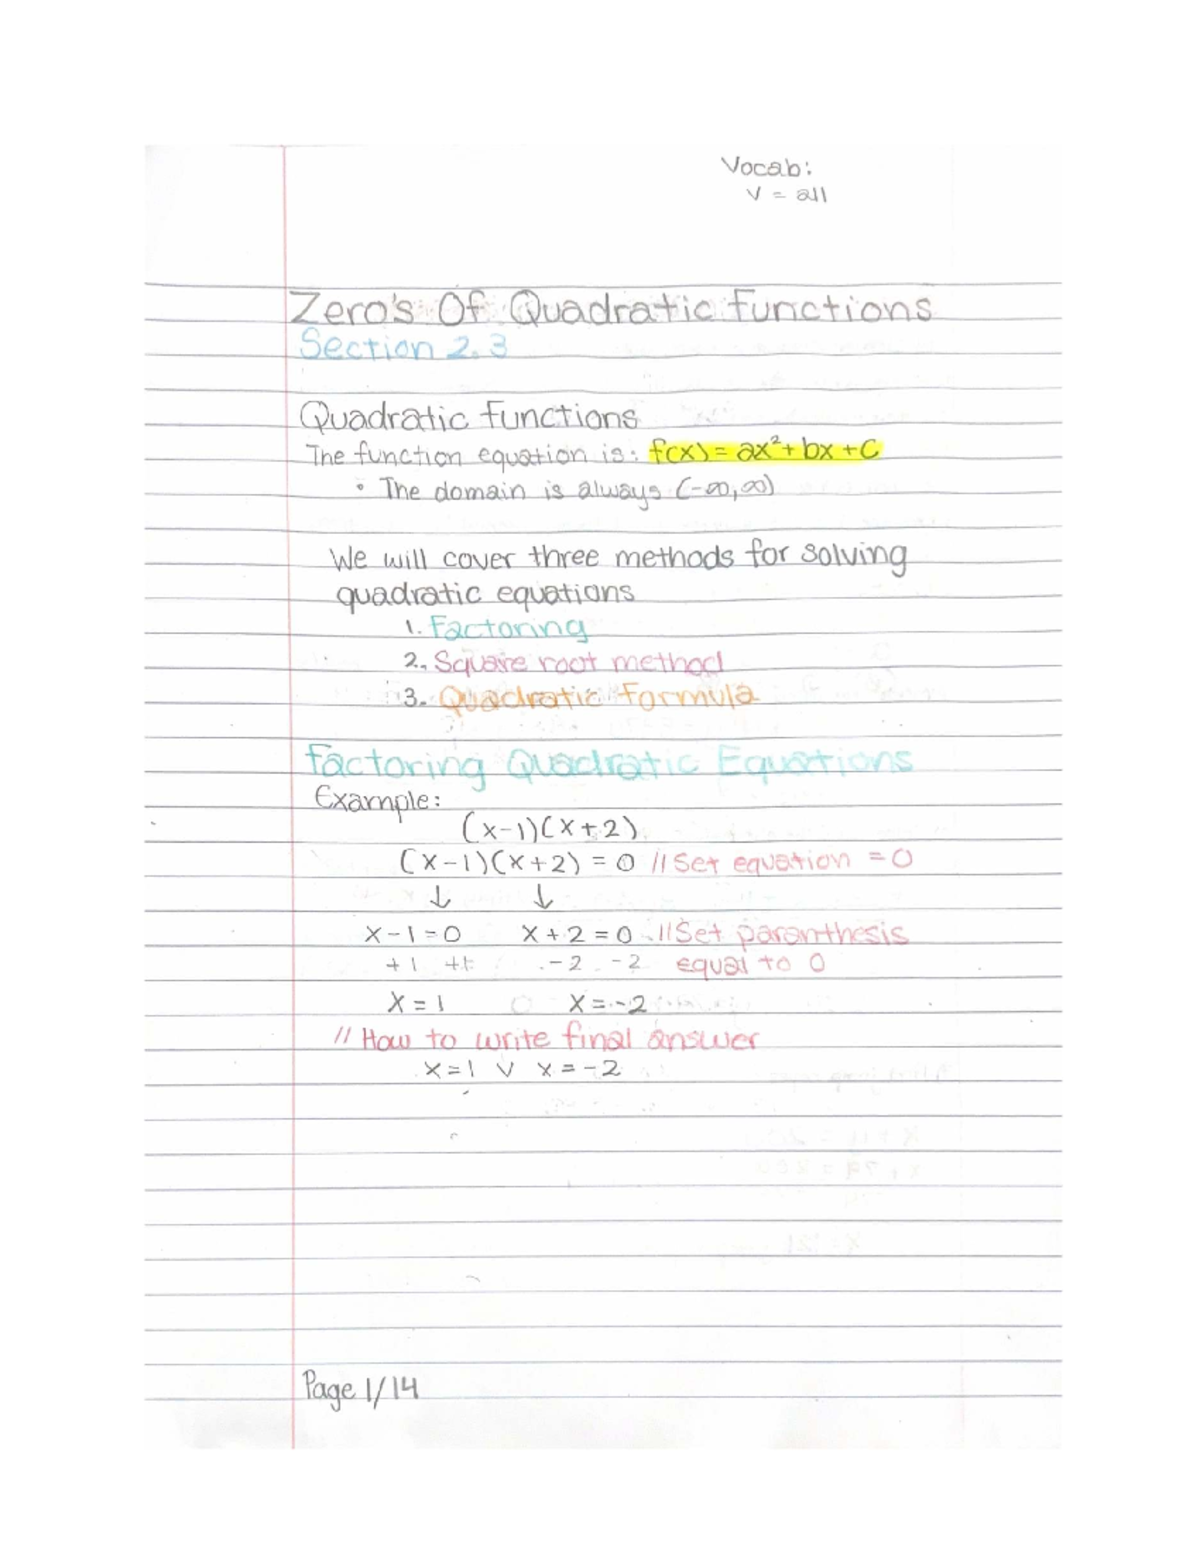 Vocab:
V = all
Zero's Of Quadratic functions
Section 2.3
Quadratic functions
The function equation is: f(x) = ax² + bx + C
• The domain is always (-∞,∞)
We will cover three methods for solving
quadratic equations
1. Factoring
2. Square root method
3. Quadratic Formula
Factoring Quadratic Equations
Example:
(x-1)(x+2)
(x-1)(x+2) = 0 // Set equation = 0
↓ ↓
x-1=0 x+2=0 // Set paranthesis
+1 +1 -2 -2 equal to 0
x=1 x=-2
// How to write final answer
x=1 V x=-2
Page 1/14